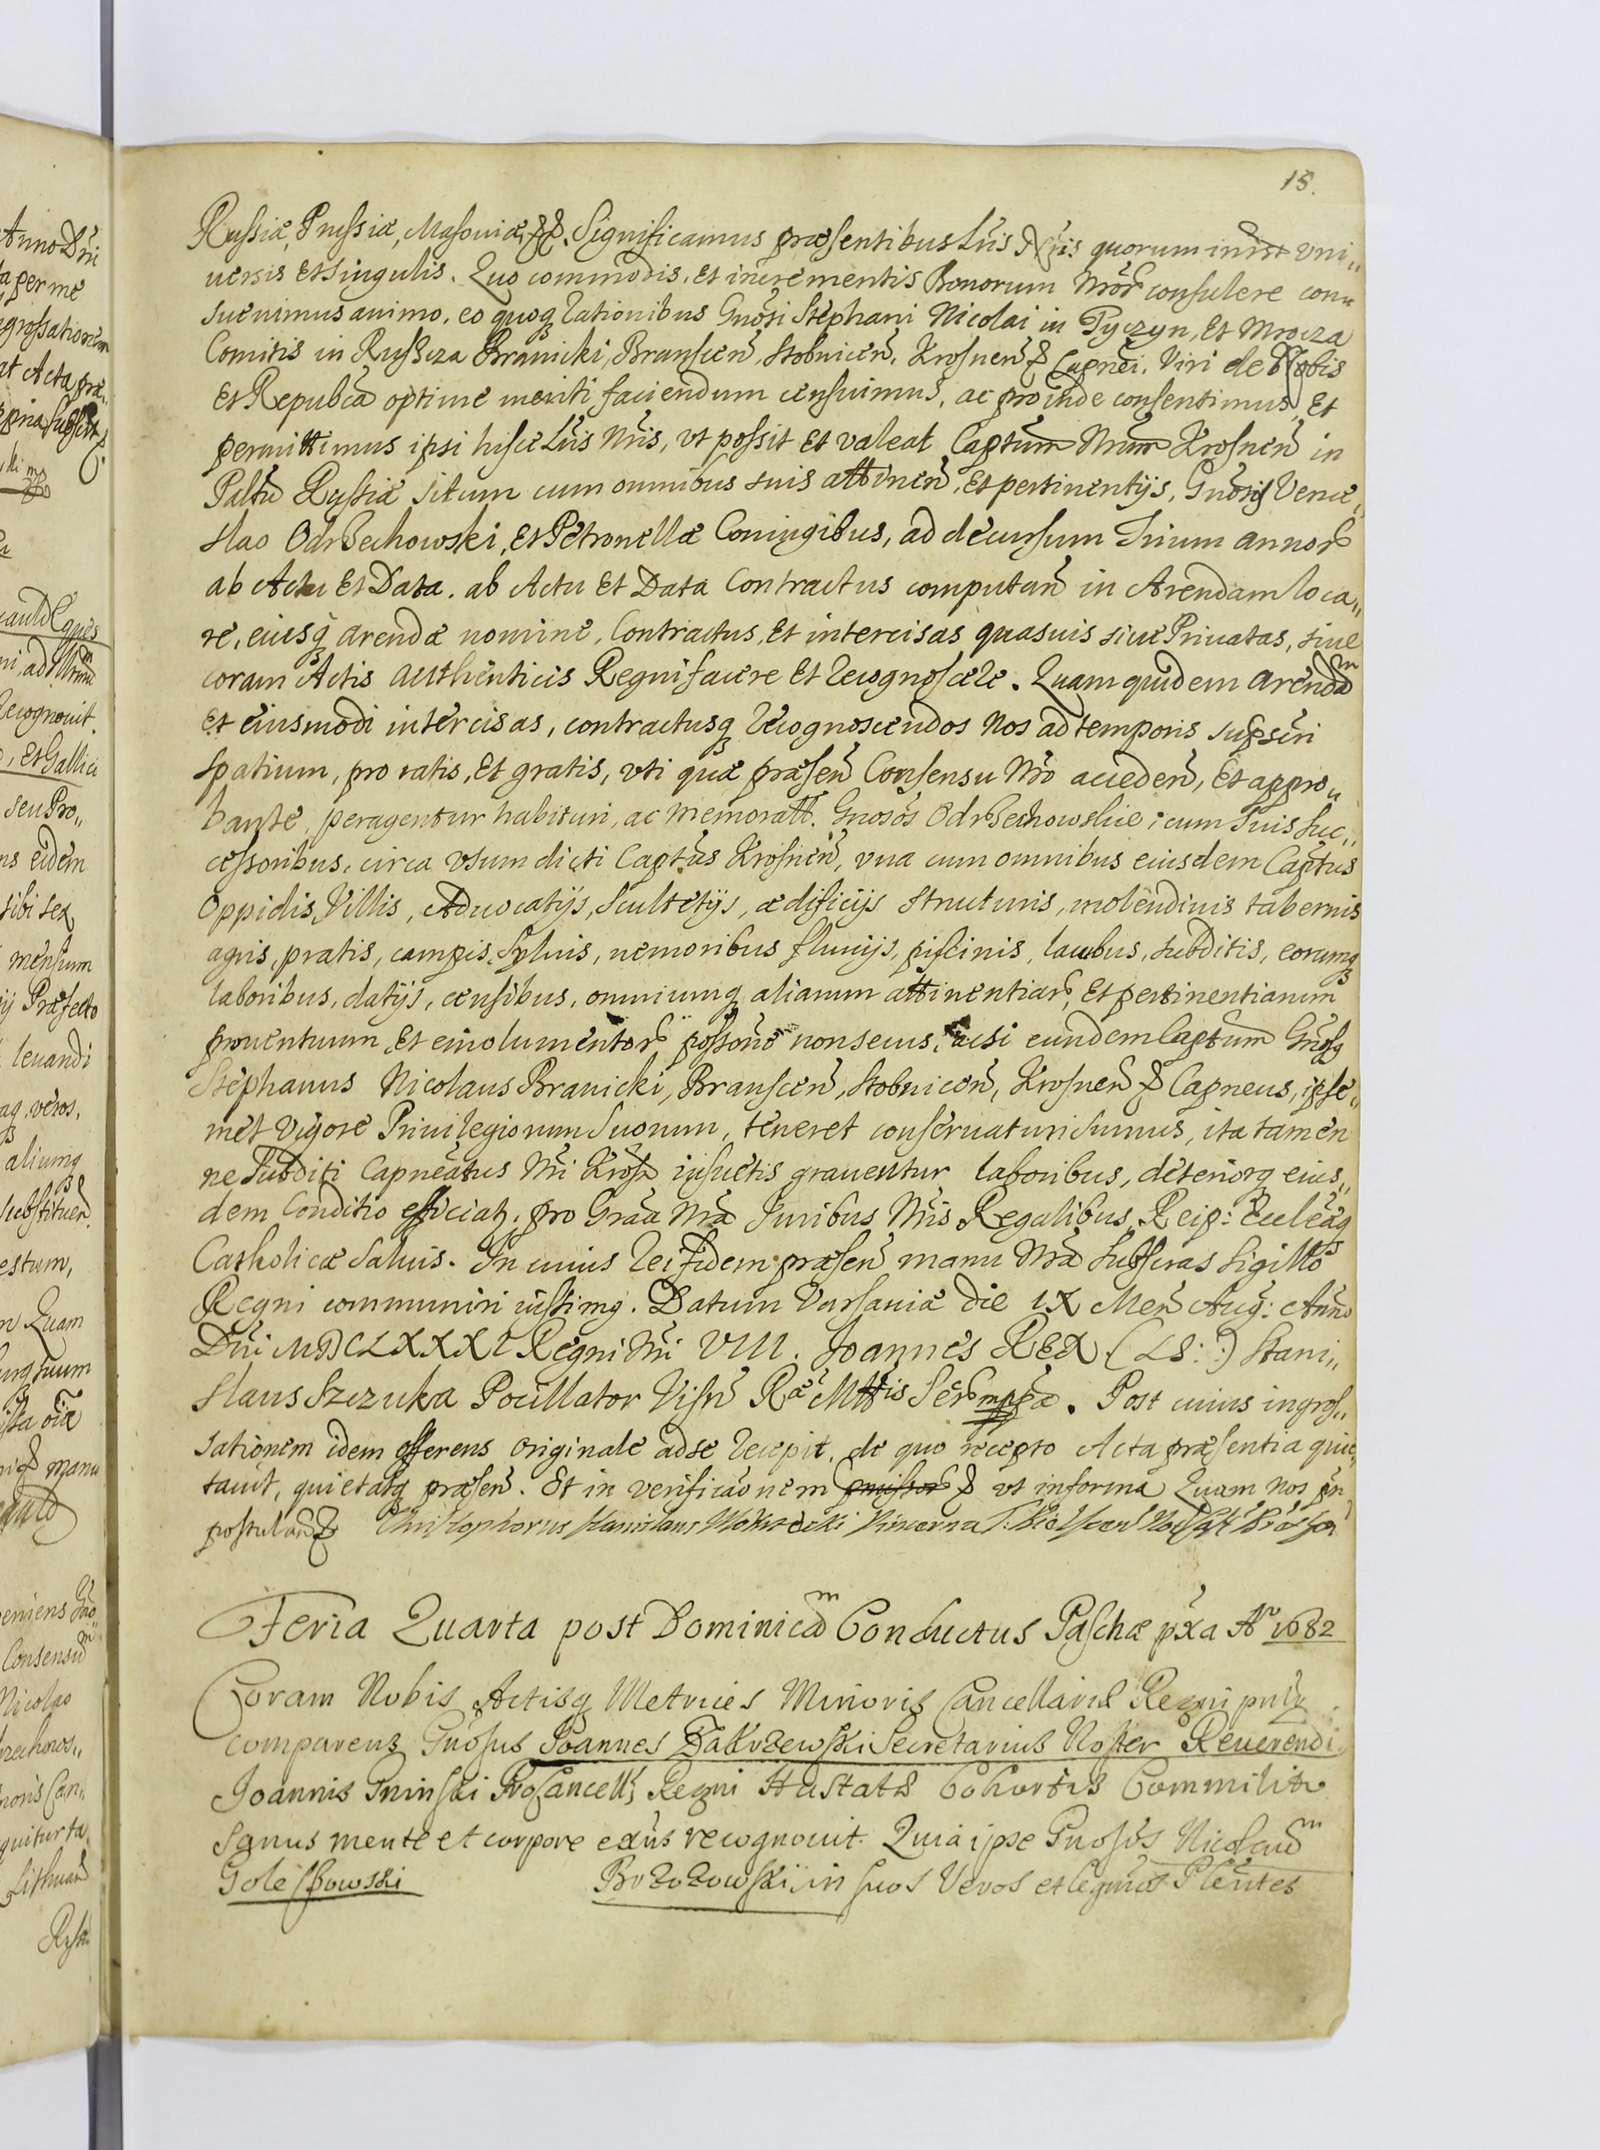 15.
Russiæ, Prussiæ, Masoviæ, Significamus præsentibus Lris Nris quorum inrst vni„
uersis Et Singulis. Quo commodis, Et incrementis Bonorum Nror consulere con„
sueuimus animo, eo quoq rationibus Gnosi Stephani Nicolai in Tyczyn, Et Mrocza
Comitis in Ruszcza Branicki, Branscen, Stobnicen, Krosnen & Capnei, Viri de Nobis
Et Repubca optime meriti faciendum censuimus, ac proinde consentimus, Et
permittimus ipsi hisce Lris Nris, vt possit Et valeat Captum Nrum Krosnen in
Paltu Russiæ situm cum omnibus suis attinen, Et pertinentijs, Gnosis Vence„
slao Odrzechowski, Et Petronellæ Coniugibus, ad decursum Trium annor
ab Actu Et Data. ab Actu Et Data Contractus computan in Arendam loca„
re, eiusq arendæ nomine, Contractus, Et intercisas quasuis siue Priuatas, siue
coram Actis authenticis Regni facere Et recognoscere. Quam quidem arendam
Et eiusmodi intercisas, contractusq recognoscendos Nos ad temporis supscri
spatium, pro ratis, Et gratis, vti quæ præsen Consensu Nro acceden, Et appro„
bante, peragentur habituri, ac memoratt. Gnosos Odrzechowskie cum suis suc„
cessoribus, circa vsum dicti Captus Krosnen, vna cum omnibus eiusdem Captus
Oppidis, Villis, Aduocatijs, Scultetijs, ædificijs structuris, molendinis tabernis
agris, pratis, campis, Syluis, nemoribus fluuijs, piscinis, lacubus, subditis, eorumq
laboribus, datijs, censibus, omniumq aliarum attinentiar, Et pertinentiarum
prouentuum, Et emolumentor possone non secus, acsi eundem Captum Gnosq
Stephanus Nicolaus Branicki, Branscen, Stobnicen, Krosnen & Capneus, ipse„
met vigore Priuilegiorum Suorum, teneret conseruaturi sumus, ita tamen
ne Subditi Capneatus Nri Krosn insuetis grauentur laboribus, deteriorq eius„
dem Conditio efficiatq, pro Graa Nra Iuribus Nris Regalibus, Reip: Eccleæq
Catholicæ Saluis. In cuius rei fidem præsen manu Nra Subscras Sigillo
Regni communiri iussimq. Datum Varsauiæ die IX Men Aug: Anno
Dni MDCLXXXI Regni Nri VIII. Joannes REX (LS:) Stani„
slaus Szczuka Pocillator Visn Ræ Mttis Ser mppa. Post cuius ingros„
sationem idem offerens originale ad se recepit, de quo recepto Acta præsentia quie„
tauit, quietatq præsen. Et in verificaonem & vt in forma Quam nos pn
postulan Christophorus Stanislaus
Feria Quarta post Dominicam Conductus Paschæ pxa Ao 1682
Coram Nobis Actisq Metrices Minoris Cancellariæ Regni pnlr
comparens Gnosus Joannes Zakrzewski Secretarius Noster Reuerendi
Joannis Gninski Procancellj Regni Hastatæ Cohortis Commilito
Sanus mente et corpore exns recognouit. Quia ipse Gnosos Nicolaum
Goleszowski Brzozowski, in suos Veros et legmos Plentes